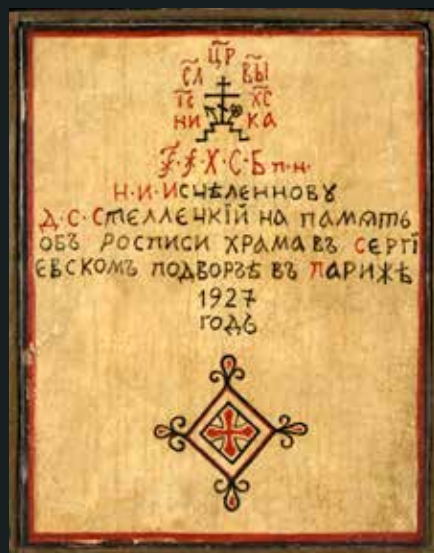 ЦР
СЛ ВЫ
IС ХС
НИ КА
Х·С·Б п·н·
Н·И·Исцѣленнову
Д·С·Стеллецкій на память
объ росписи храма въ Сергі
евскомъ подворьѣ въ Парижѣ
1927
годъ